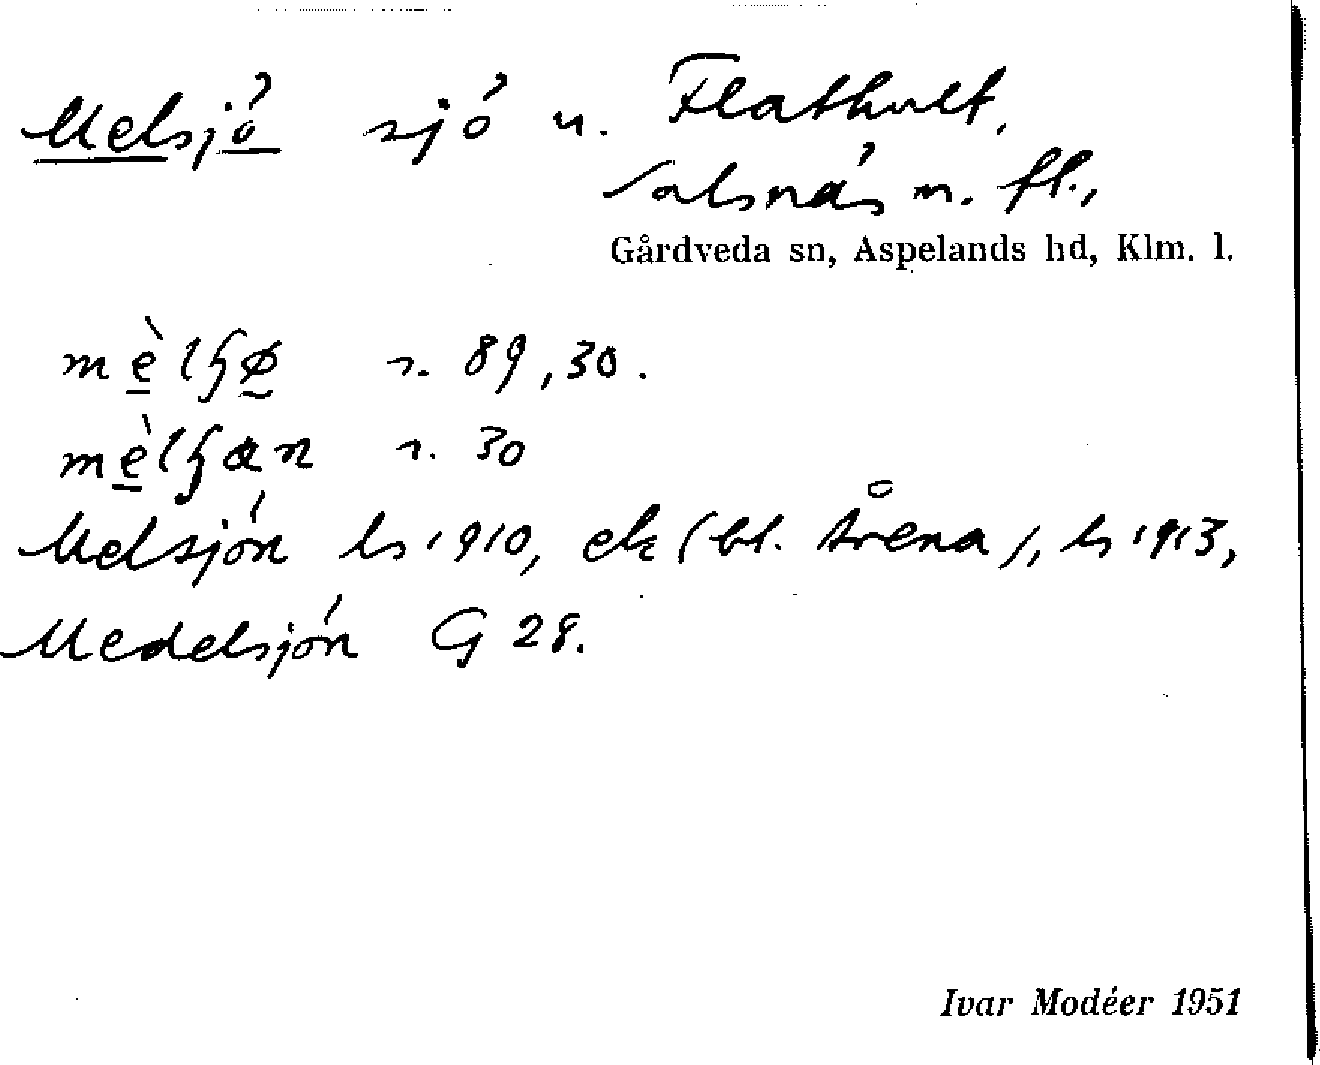 Melsjö sjö u. Flathult,
Salsnäs m. fl.,
Gårdveda sn, Aspelands hd, Klm. l.
mèlɧø s. 89, 30.
mèlɧan s. 30
Melsjön ls 1910, ek (bl. Årena), ls 1913,
Medelsjön G 28.
Ivar Modéer 1951